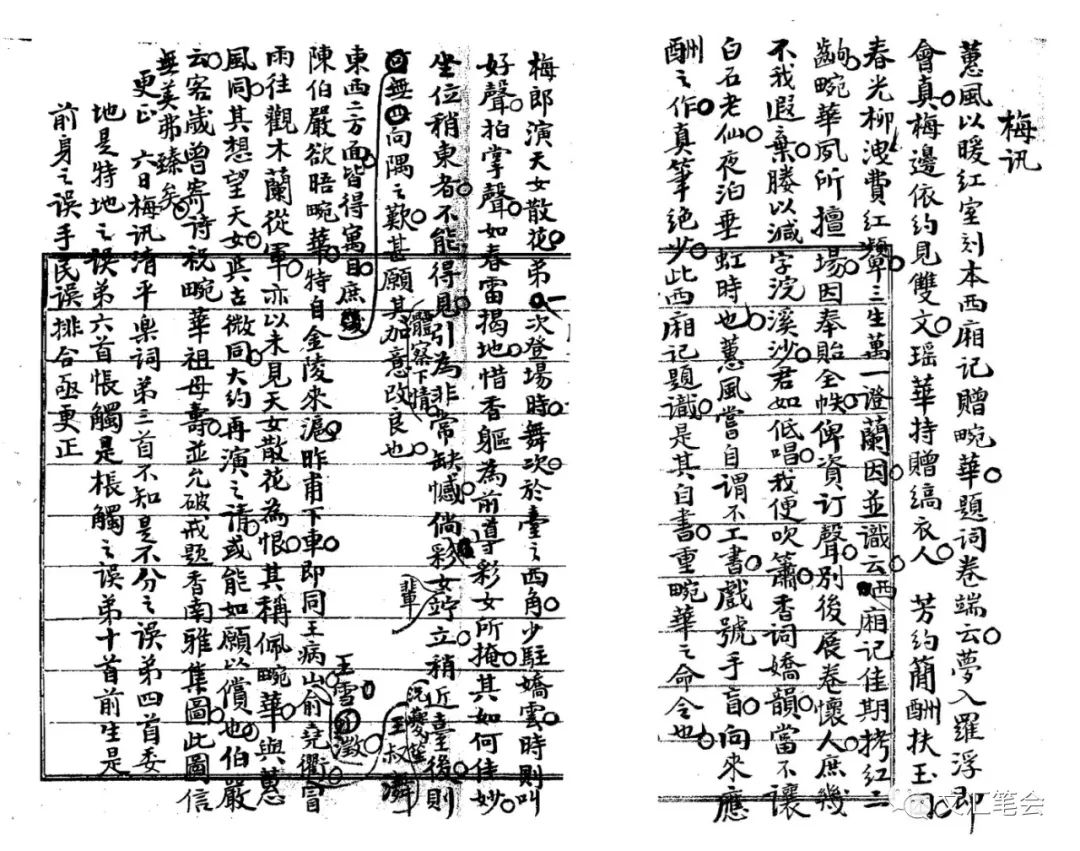 梅讯
蕙風以暖紅室刻本西廂記贈畹華題詞卷端云夢入羅浮即
會真梅邊依約見雙文瑤華持贈縞衣人　芳約簡酬扶玉困
春光柳洩費紅顰三生萬一證蘭因並識云西廂記佳期拷紅二
齣畹華夙所擅場因奉貽全帙俾資訂聲別後展卷懷人庶幾
不我遐棄媵以減字浣溪沙君如低唱我便吹簫香詞嬌韻當不讓
白石老仙夜泊垂虹時也蕙風嘗自謂不工書戲號手盲向來應
酬之作真筆絕少此西廂記題識是其自書重畹華之命令也
梅郎演天女散花弟一次登場時舞次於臺之西角少駐嬌雲時則叫
好聲拍掌聲如春雷揭地惜香軀為前導彩女所掩其如何佳妙
坐位稍東者不能得見引為非常缺憾倘彩女竚立稍近臺後則
輩
體察下情
可無向隅之歎甚願其加意改良也
東西二方面皆得寓目庶幾
況夔笙
王叔澥
陳伯嚴欲晤畹華特自金陵來滬昨甫下車即同王病山俞堯衢冒
王雪澂
雨往觀木蘭從軍亦以未見天女散花為恨其稱佩畹華與蕙
風同其想望天女與古微同大約再演之請或能如願以償也伯嚴
云客歲曾寄詩祝畹華祖母壽並允破戒題香南雅集圖此圖信
無美弗臻矣
更正　六日梅讯清平樂詞弟三首不知是不分之误弟四首委
地是特地之误弟六首悵觸是棖觸之误弟十首前生是
前身之误手民误排合亟更正
文汇笔会